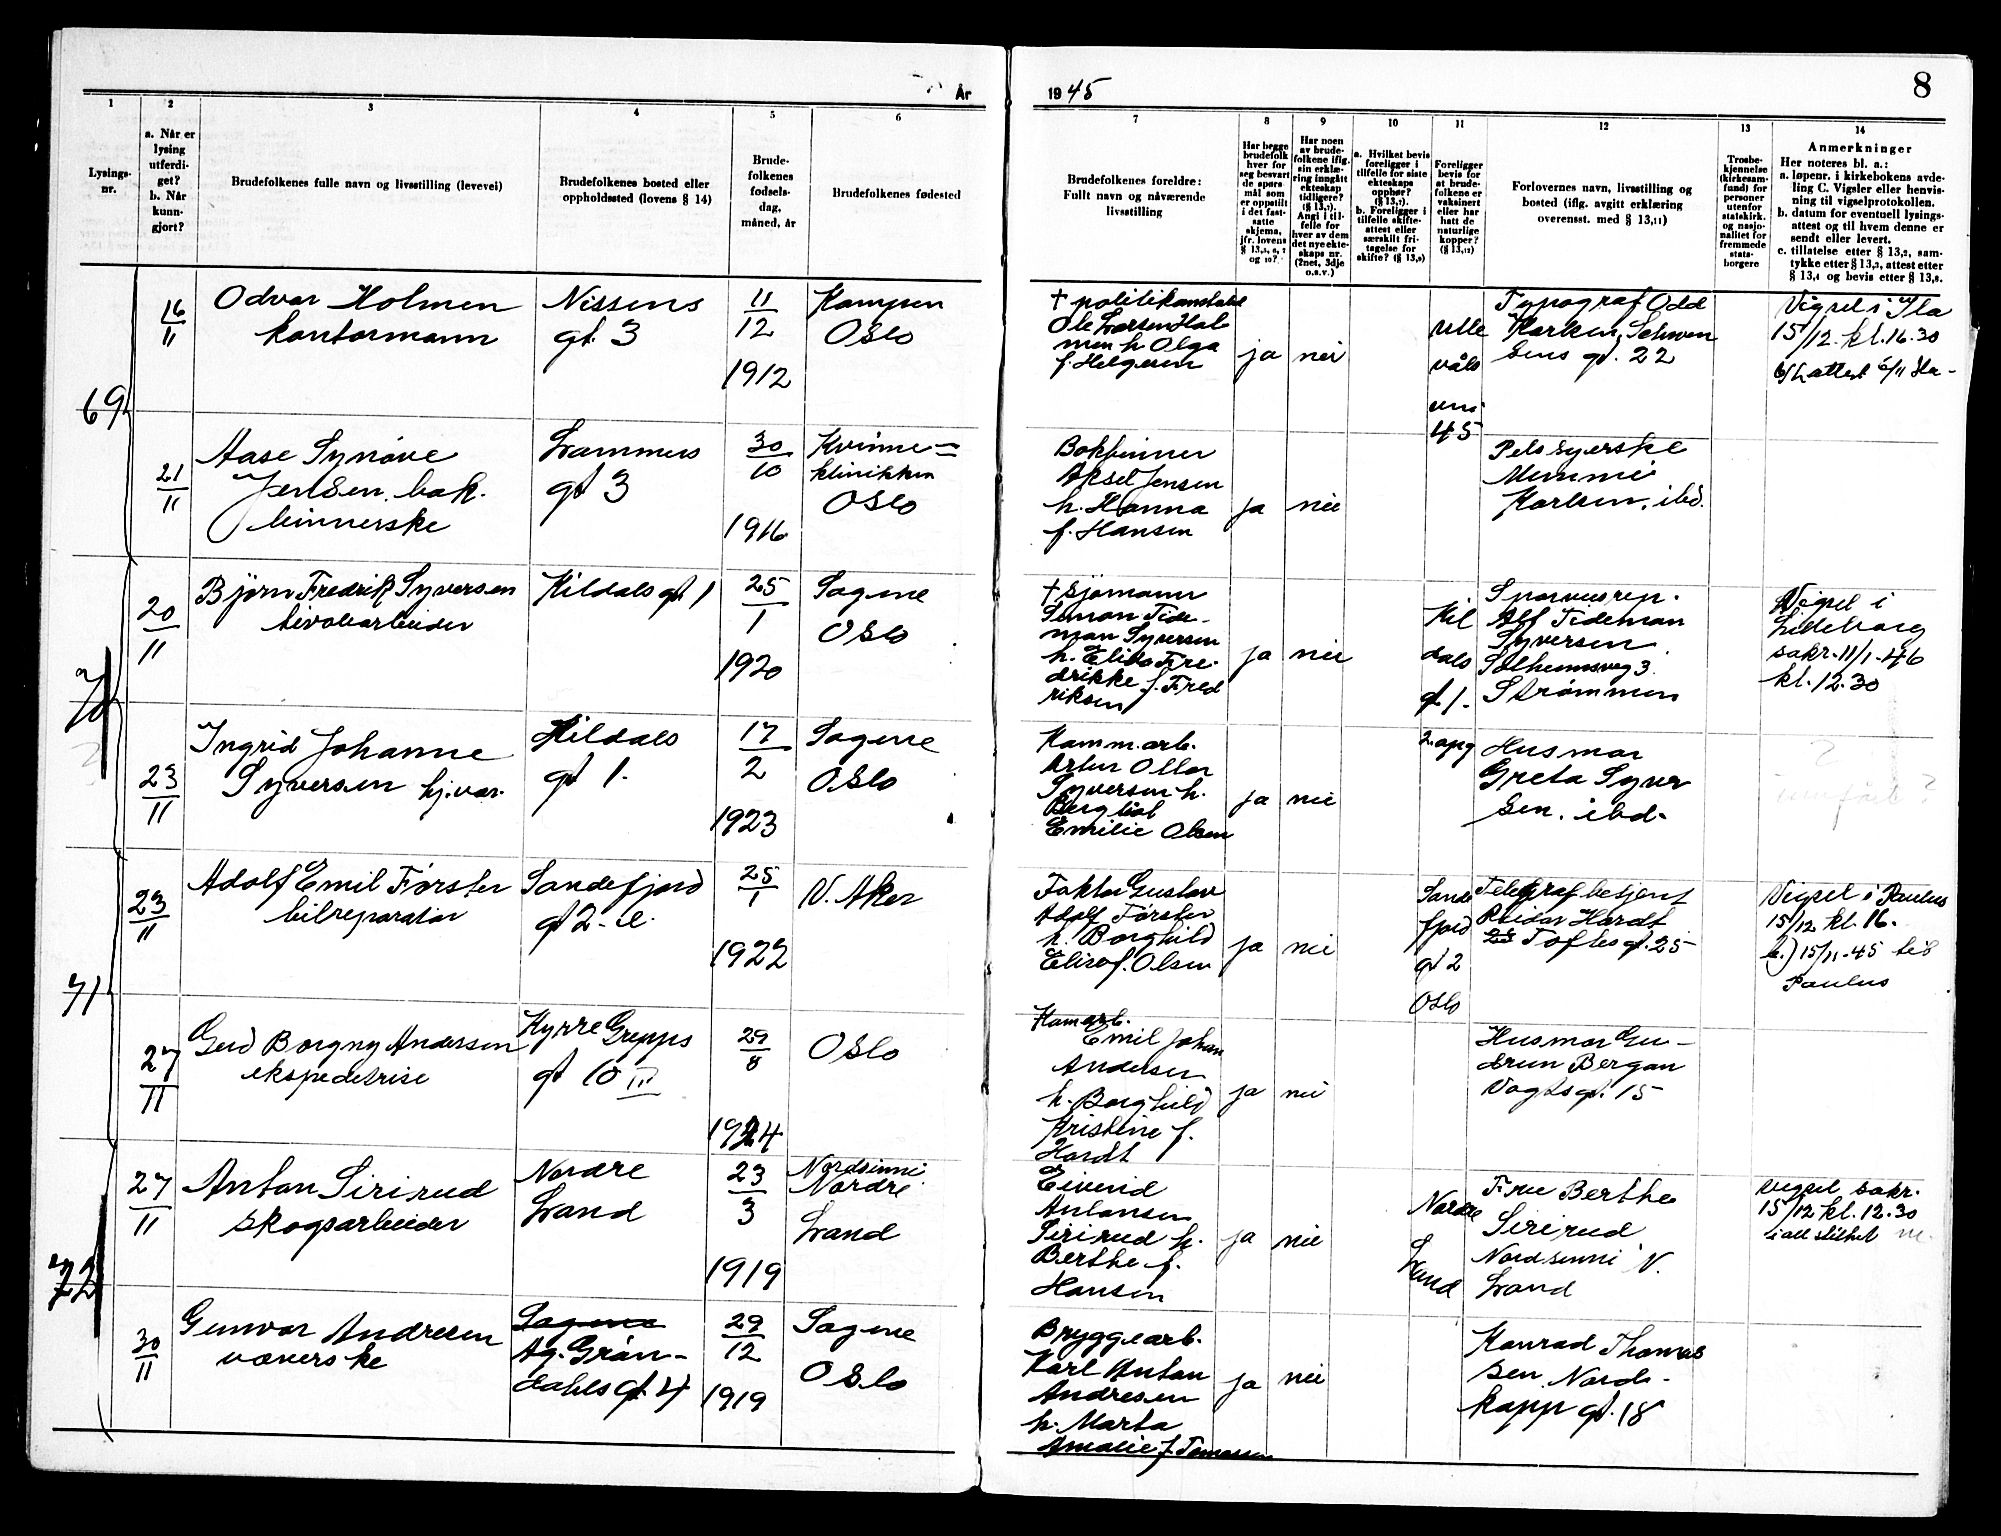 År
1945
8
1
2
3
4
5
6
7
8
9
10
11
12
13
14
Lysings-
nr.
a. Når er
lysing
utferdi-
get?
b. Når
kunn-
gjort?
Brudefolkenes fulle navn og livsstilling (levevei)
Brudefolkenes bosted eller
oppholdssted (lovens § 14)
Brude-
folkenes
fødsels-
dag,
måned, år
Brudefolkenes fødested
Brudefolkenes foreldre:
Fullt navn og nåværende
livsstilling
Har begge
brudefolk
hver for
seg besvart
de spørs-
mål som
er oppstilt
i det fast-
satte
skjema,
jfr. lovens
og 10?
Har noen
av brude-
folkene iflg.
sin erklæ-
ring inngått
ekteskap
tidligere?
Angi i til-
felle for
hver av dem
det nye ekte-
skaps nr.
(2net, 3dje
o.s.v.)
a. Hvilket bevis
foreligger i
tilfelle for siste
ekteskaps
opphør?
b. Foreligger i
tilfelle skifte-
attest eller
særskilt fri-
tagelse for
skifte?
Foreligger
bevis for
at brude-
folkene er
vaksinert
eller har
hatt de
naturlige
kopper?
Forlovernes navn, livsstilling og
bosted (iflg. avgitt erklæring
overensst. med § 13,11)
Trosbe-
kjennelse
(kirkesam-
fund) for
personer
utenfor
statskirk.
og nasjo-
nalitet for
fremmede
stats-
borgere
Anmerkninger
Her noteres bl. a.:
a. løpenr. i kirkebokens avde-
ling C. Vigsler eller henvis-
ning til vigselprotokollen.
b. datum for eventuell lysings-
attest og til hvem denne er
sendt eller levert.
c. tillatelse etter § 13,2, sam-
tykke etter § 13,3, attest etter
§ 13,4 og bevis etter § 13,8.
69
16/11
Odvar Holmen
kontormann
Nissens
gt. 3
11/12
1912
Kampen
Oslo
+ politikonstabel
Ole Larsen Hol
men h. Olga
f. Helgesen
ja
nei
Ulle
vål
45
Typograf Odd
Karlsen, Schwen
sens gt. 22
Vigsel i Ila
15/12. kl. 16.30
21/11
Aase Synøve
Jensen bok-
binnerske
Lammers
gt 3
30/10
1916
Kvinne=
klinikken
Oslo
Bokbinner
Aksel Jensen
h. Hanna
f. Hansen
ja
nei
Pelssyerske
Mimmi
Karlsen, ibd.
70
20/11
Bjørn Fredrik Syversen
tivoliarbeider
Kildals gt 1
25/1
1920
Sagene
Oslo
+ sjømann
Simon Tide-
man Syversen
h. Elise Fre-
drikke f. Fred
riksen
ja
nei
Kil
dals
gt. 1.
Sporveisrep.
Alf Tideman
Syversen
Solheimsveg 3.
Strømmen
Vigsel i
Lilleborg
sakr. 11/1-46
kl. 12.30
23/11
Ingrid Johanne
Syversen hj.vær.
Kildals
gt 1.
17/2
1923
Sagene
Oslo
Komm.arb.
Artur Ottar
Syversen h.
Bergliot
Emilie Olsen
ja
nei
2.opg
Husmor
Greta Syver
sen. ibd.
71
23/11
Adolf Emil Förster
bilreparatør
Sandefjord
gt 2.
25/1
1922
V. Aker
Faktor Gustav
Adolf Förster
h. Borghild
Elise f. Olsen
ja
nei
Sande
fjord
gt 2
Oslo
Telegrafbetjent
Reidar Hardt
Toftes gt. 25
Vigsel i Paulus
15/12 kl. 16.
b.) 15/11-45 til
Paulus
27/11
Gerd Borgny Andersen
ekspeditrise
Kyrre Grepps
gt 10 III
29/8
1924
Oslo
Kom arb.
Emil Johan
Andersen
h. Borghild
Kristine f.
Hardt
ja
nei
Husmor Gu-
drun Bergan
Vogts gt. 15
72
27/11
Anton Sirirud
skogsarbeider
Nordre
Land
23/3
1919
Nordsinni
Nordre
Land
Eivind
Antonsen
Sirirud h.
Berthe f.
Hansen
ja
nei
Nordre
Land
Frue Berthe
Sirirud
Nordsinni N.
Land
Vigsel sakr.
15/12 kl. 12.30
i all stilhet
30/11
Gunvor Andresen
væverske
Sagene
Ag. Grøn-
dahls gt. 4
29/12
1919
Sagene
Oslo
Bryggearb.
Karl Anton
Andresen
h. Marta
Amalie f. Tomassen
ja
nei
Konrad Thomas
sen Nord-
kapp gt. 18